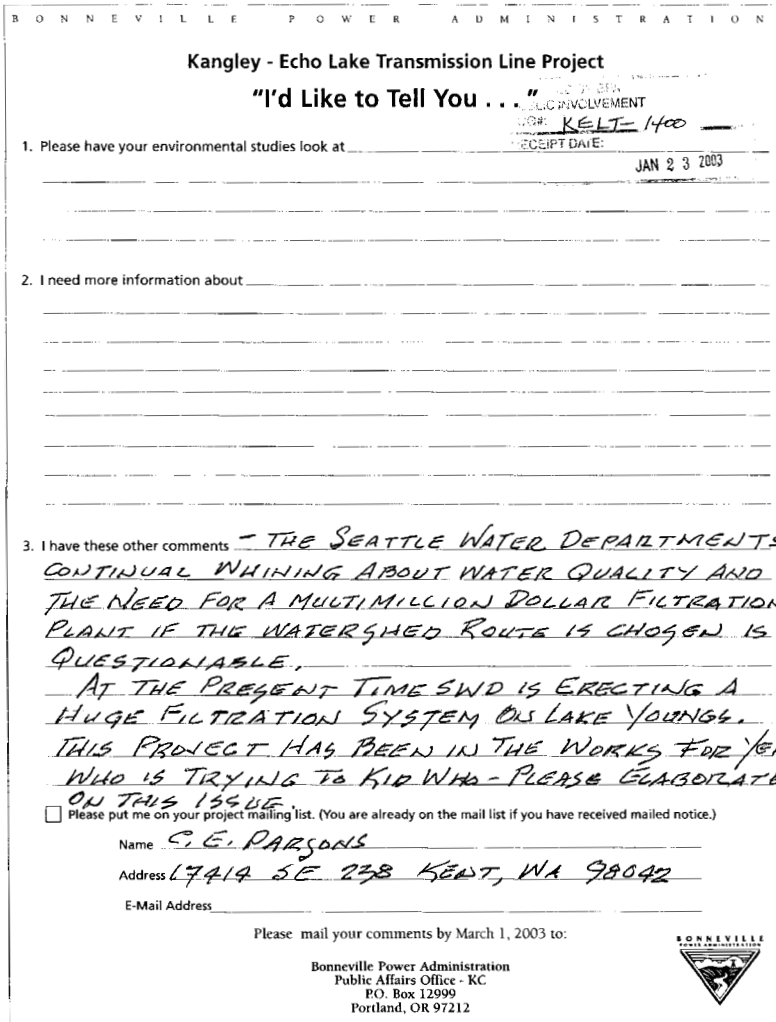 BONNEVILLE POWER ADMINISTRATION
Kangley - Echo Lake Transmission Line Project
"I'd Like to Tell You . . ."
INVOLVEMENT
KELT- 1400
ECEIPT DATE:
JAN 2 3 2003
1. Please have your environmental studies look at
2. I need more information about
3. I have these other comments - THE SEATTLE WATER DEPARTMENTS
CONTINUAL WHINING ABOUT WATER QUALITY AND
THE NEED FOR A MULTIMILLION DOLLAR FILTRATION
PLANT IF THE WATERSHED ROUTE IS CHOSEN IS
QUESTIONABLE.
AT THE PRESENT TIME SWD IS ERECTING A
HUGE FILTRATION SYSTEM ON LAKE YOUNGS.
THIS PROJECT HAS BEEN IN THE WORKS FOR YE
WHO IS TRYING TO KID WHO - PLEASE ELABORATE
ON THIS ISSUE.
Please put me on your project mailing list. (You are already on the mail list if you have received mailed notice.)
Name C. E. PARSONS
Address 17414 SE 238 KENT, WA 98042
E-Mail Address
Please mail your comments by March 1, 2003 to:
Bonneville Power Administration
Public Affairs Office - KC
P.O. Box 12999
Portland, OR 97212
BONNEVILLE
POWER ADMINISTRATION